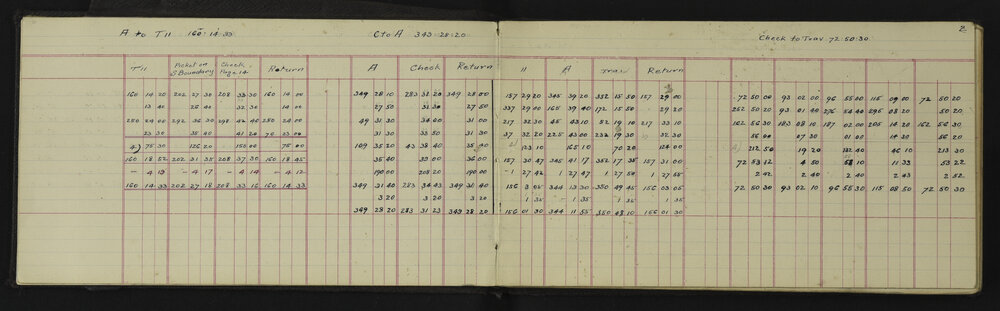 2
A to T11 160·14·33 C to A 349·28·20 Check to Trav 72 50·30
T11 Picket on S Boundary Check Page 14 Return A Check Return 11 A Trav Return
160 14 20 202 27 30 208 33 30 160 14 00 349 28 10 283 31 20 349 28 00 157 29 20 345 39 20 352 15 50 157 29 00 72 50 00 93 02 00 96 55 00 115 09 00 72 50 20
13 40 26 40 32 30 14 00 27 50 31 30 27 50 337 29 00 165 39 40 172 15 50 29 20 252 50 20 93 01 40 276 54 40 295 08 20 50 20
250 24 00 292 36 30 298 42 40 250 24 00 49 31 30 34 00 31 00 217 32 30 45 43 10 52 19 10 217 33 10 162 56 30 183 08 10 187 02 00 205 14 20 162 56 30
23 30 35 40 41 20 70 23 00 31 30 33 50 31 30 37 32 20 225 43 00 232 19 30 32 30 56 00 07 30 01 00 14 30 56 20
4) 75 30 126 20 150 00 75 00 109 35 20 43 38 40 35 40 123 10 165 10 70 20 124 00 212 50 19 20 46 10 213 30
160 18 52 202 31 35 208 37 30 160 18 45 35 40 39 00 36 00 157 30 47 345 41 17 352 17 35 157 31 00 72 53 12 4 50 58 10 11 33 53 22
- 4 19 - 4 17 - 4 14 - 4 12 190 00 208 20 190 20 - 1 27 42 1 27 47 1 27 50 1 27 55 2 42 2 40 2 40 2 43 2 52
160 14 33 202 27 18 208 33 16 160 14 33 349 31 40 283 34 43 349 31 40 156 3 05 344 13 30 350 49 45 156 03 05 72 50 30 93 02 10 96 55 30 115 08 50 72 50 30
3 20 3 20 3 20 1 35 - 1 35 1 35 1 35
349 28 20 283 31 23 349 28 20 156 01 30 344 11 55 350 48 10 156 01 30